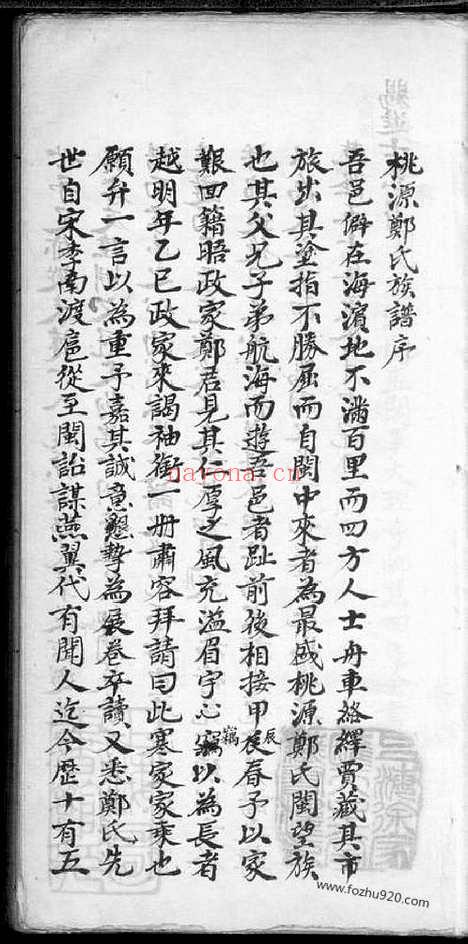 桃源鄭氏族譜序
吾邑僻在海濱地不滿百里而四方人士舟車絡繹賈藏其市
旅出其塗指不勝屈而自閩中來者為最盛桃源鄭氏閩望族
也其父兄子弟航海而遊吾邑者趾前後相接甲辰春予以家
艱回籍晤政家鄭君見其仁厚之風充溢眉宇心竊以為長者
越明年乙巳政家來謁袖一冊肅容拜請曰此寒家家乘也
願弁一言以為重予嘉其誠意懇摯為展卷卒讀又悉鄭氏先
世自宋季南渡扈從至閩詒謀燕翼代有聞人迄今歷十有五
辰
竊
nayona.cn
www.fozhu920.com